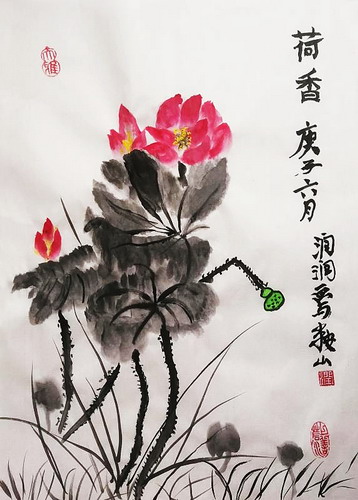 荷香
庚子六月
润润写於鞍山